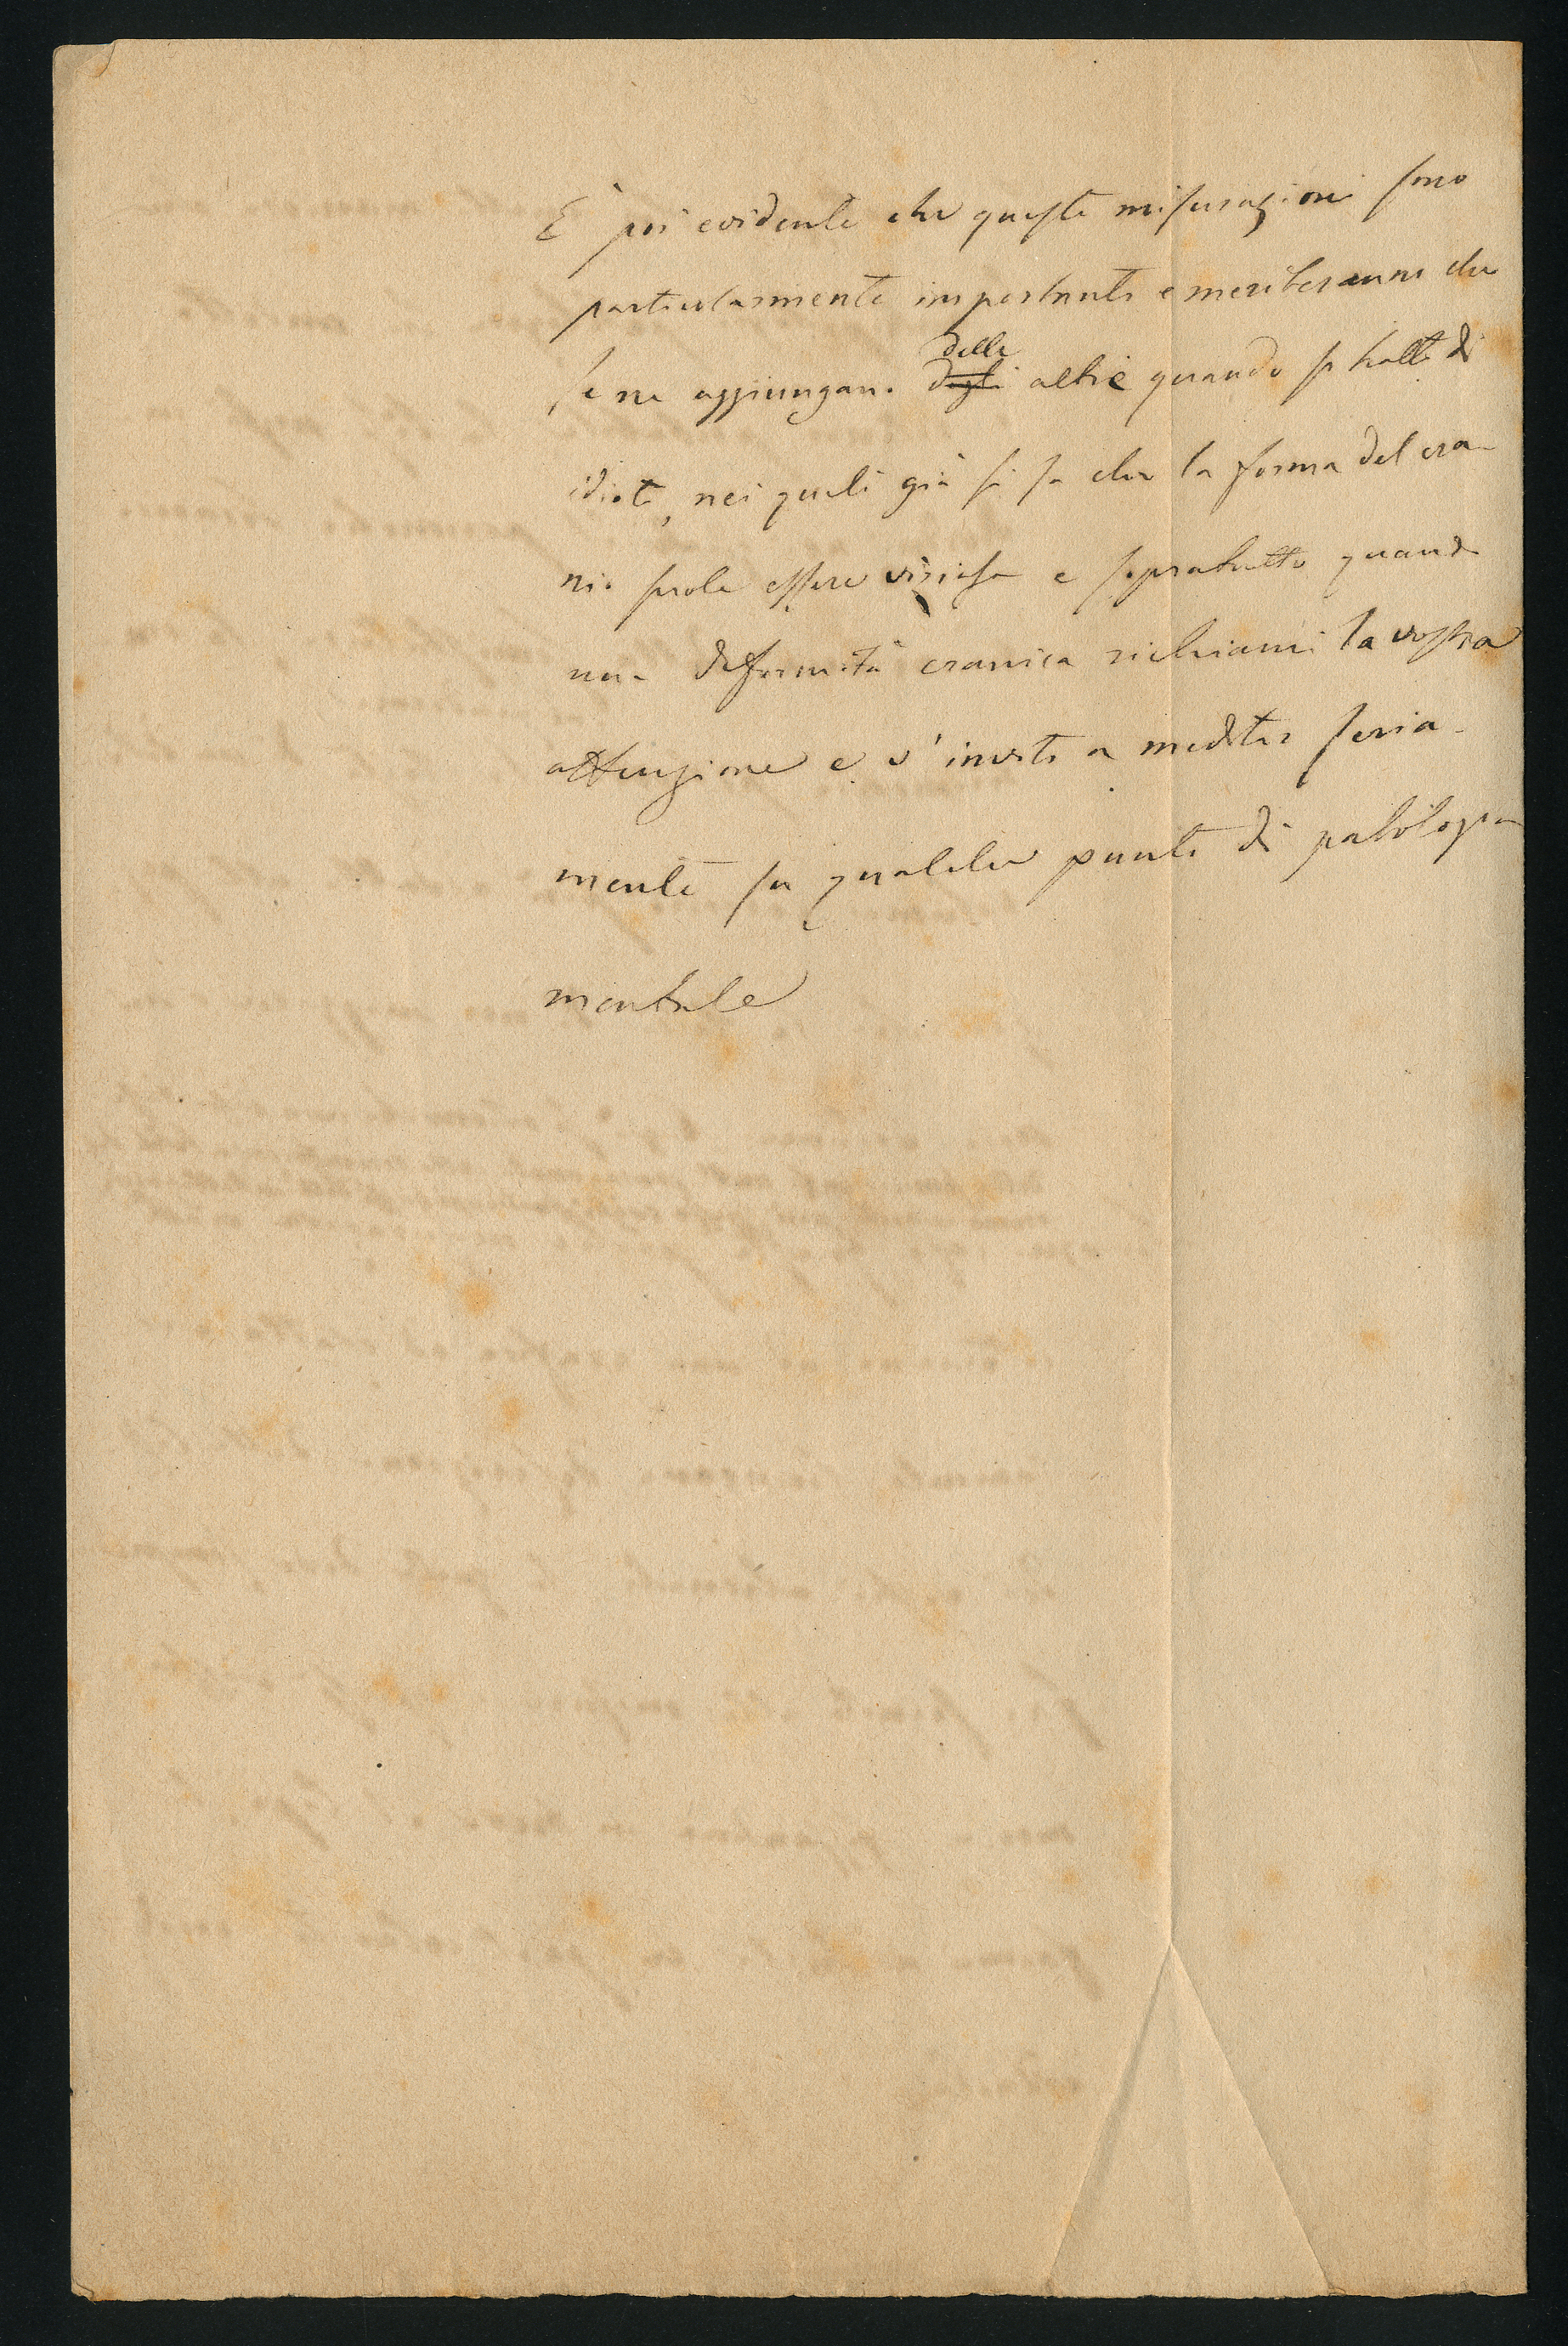 È poi evidente che queste misurazioni sono
particolarmente importanti e meriteranno che
se ne aggiungano delle
degli altre quando si tratti di
idioti, nei quali già si sa che la forma del cra-
nio suole essere viziosa e sopratutto quando
una deformità cranica richiami la vostra
attenzione e v'inviti a meditar seria-
mente su qualche punto di patologia
mentale